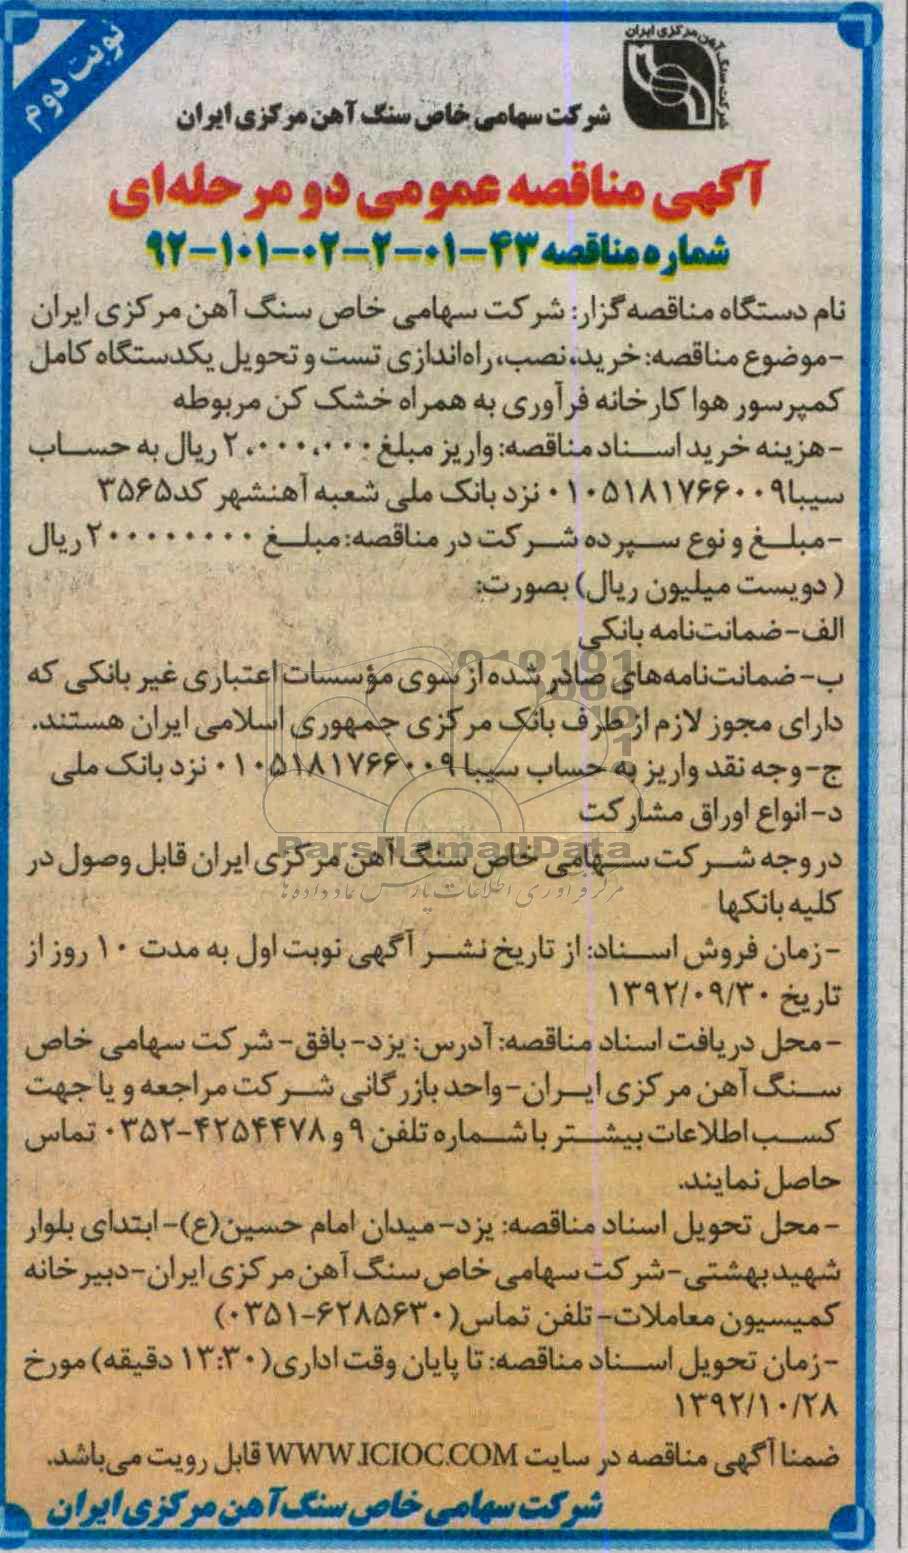 نوبت دوم
شرکت سنگ آهن مرکزی ایران
شرکت سهامی خاص سنگ آهن مرکزی ایران
آگهی مناقصه عمومی دو مرحله‌ای
شماره مناقصه ۴۳-۰۱-۲-۰۲-۱۰۱-۹۲
نام دستگاه مناقصه گزار: شرکت سهامی خاص سنگ آهن مرکزی ایران
-موضوع مناقصه: خرید، نصب، راه‌اندازی تست و تحویل یکدستگاه کامل
کمپرسور هوا کارخانه فرآوری به همراه خشک کن مربوطه
-هزینه خرید اسناد مناقصه: واریز مبلغ ۲،۰۰۰،۰۰۰ ریال به حساب
سیبا ۰۱۰۵۱۸۱۷۶۶۰۰۹ نزد بانک ملی شعبه آهنشهر کد ۳۵۶۵
-مبلغ و نوع سپرده شرکت در مناقصه: مبلغ ۲۰۰۰۰۰۰۰۰ ریال
(دویست میلیون ریال) بصورت:
الف-ضمانت‌نامه بانکی
ب-ضمانت‌نامه‌های صادر شده از سوی مؤسسات اعتباری غیر بانکی که
دارای مجوز لازم از طرف بانک مرکزی جمهوری اسلامی ایران هستند.
ج-وجه نقد واریز به حساب سیبا ۰۱۰۵۱۸۱۷۶۶۰۰۹ نزد بانک ملی
د-انواع اوراق مشارکت
ParsNamadData
در وجه شرکت سهامی خاص سنگ آهن مرکزی ایران قابل وصول در
کلیه بانکها
-زمان فروش اسناد: از تاریخ نشر آگهی نوبت اول به مدت ۱۰ روز از
تاریخ ۱۳۹۲/۰۹/۳۰
-محل دریافت اسناد مناقصه: آدرس: یزد-بافق-شرکت سهامی خاص
سنگ آهن مرکزی ایران-واحد بازرگانی شرکت مراجعه و یا جهت
کسب اطلاعات بیشتر با شماره تلفن ۹ و ۴۲۵۴۴۷۸-۰۳۵۲ تماس
حاصل نمایند.
-محل تحویل اسناد مناقصه: یزد-میدان امام حسین(ع)-ابتدای بلوار
شهید بهشتی-شرکت سهامی خاص سنگ آهن مرکزی ایران-دبیرخانه
کمیسیون معاملات-تلفن تماس(۶۲۸۵۶۳۰-۰۳۵۱)
-زمان تحویل اسناد مناقصه: تا پایان وقت اداری(۱۳:۳۰ دقیقه) مورخ
۱۳۹۲/۱۰/۲۸
ضمنا آگهی مناقصه در سایت WWW.ICIOC.COM قابل رویت می‌باشد.
شرکت سهامی خاص سنگ آهن مرکزی ایران